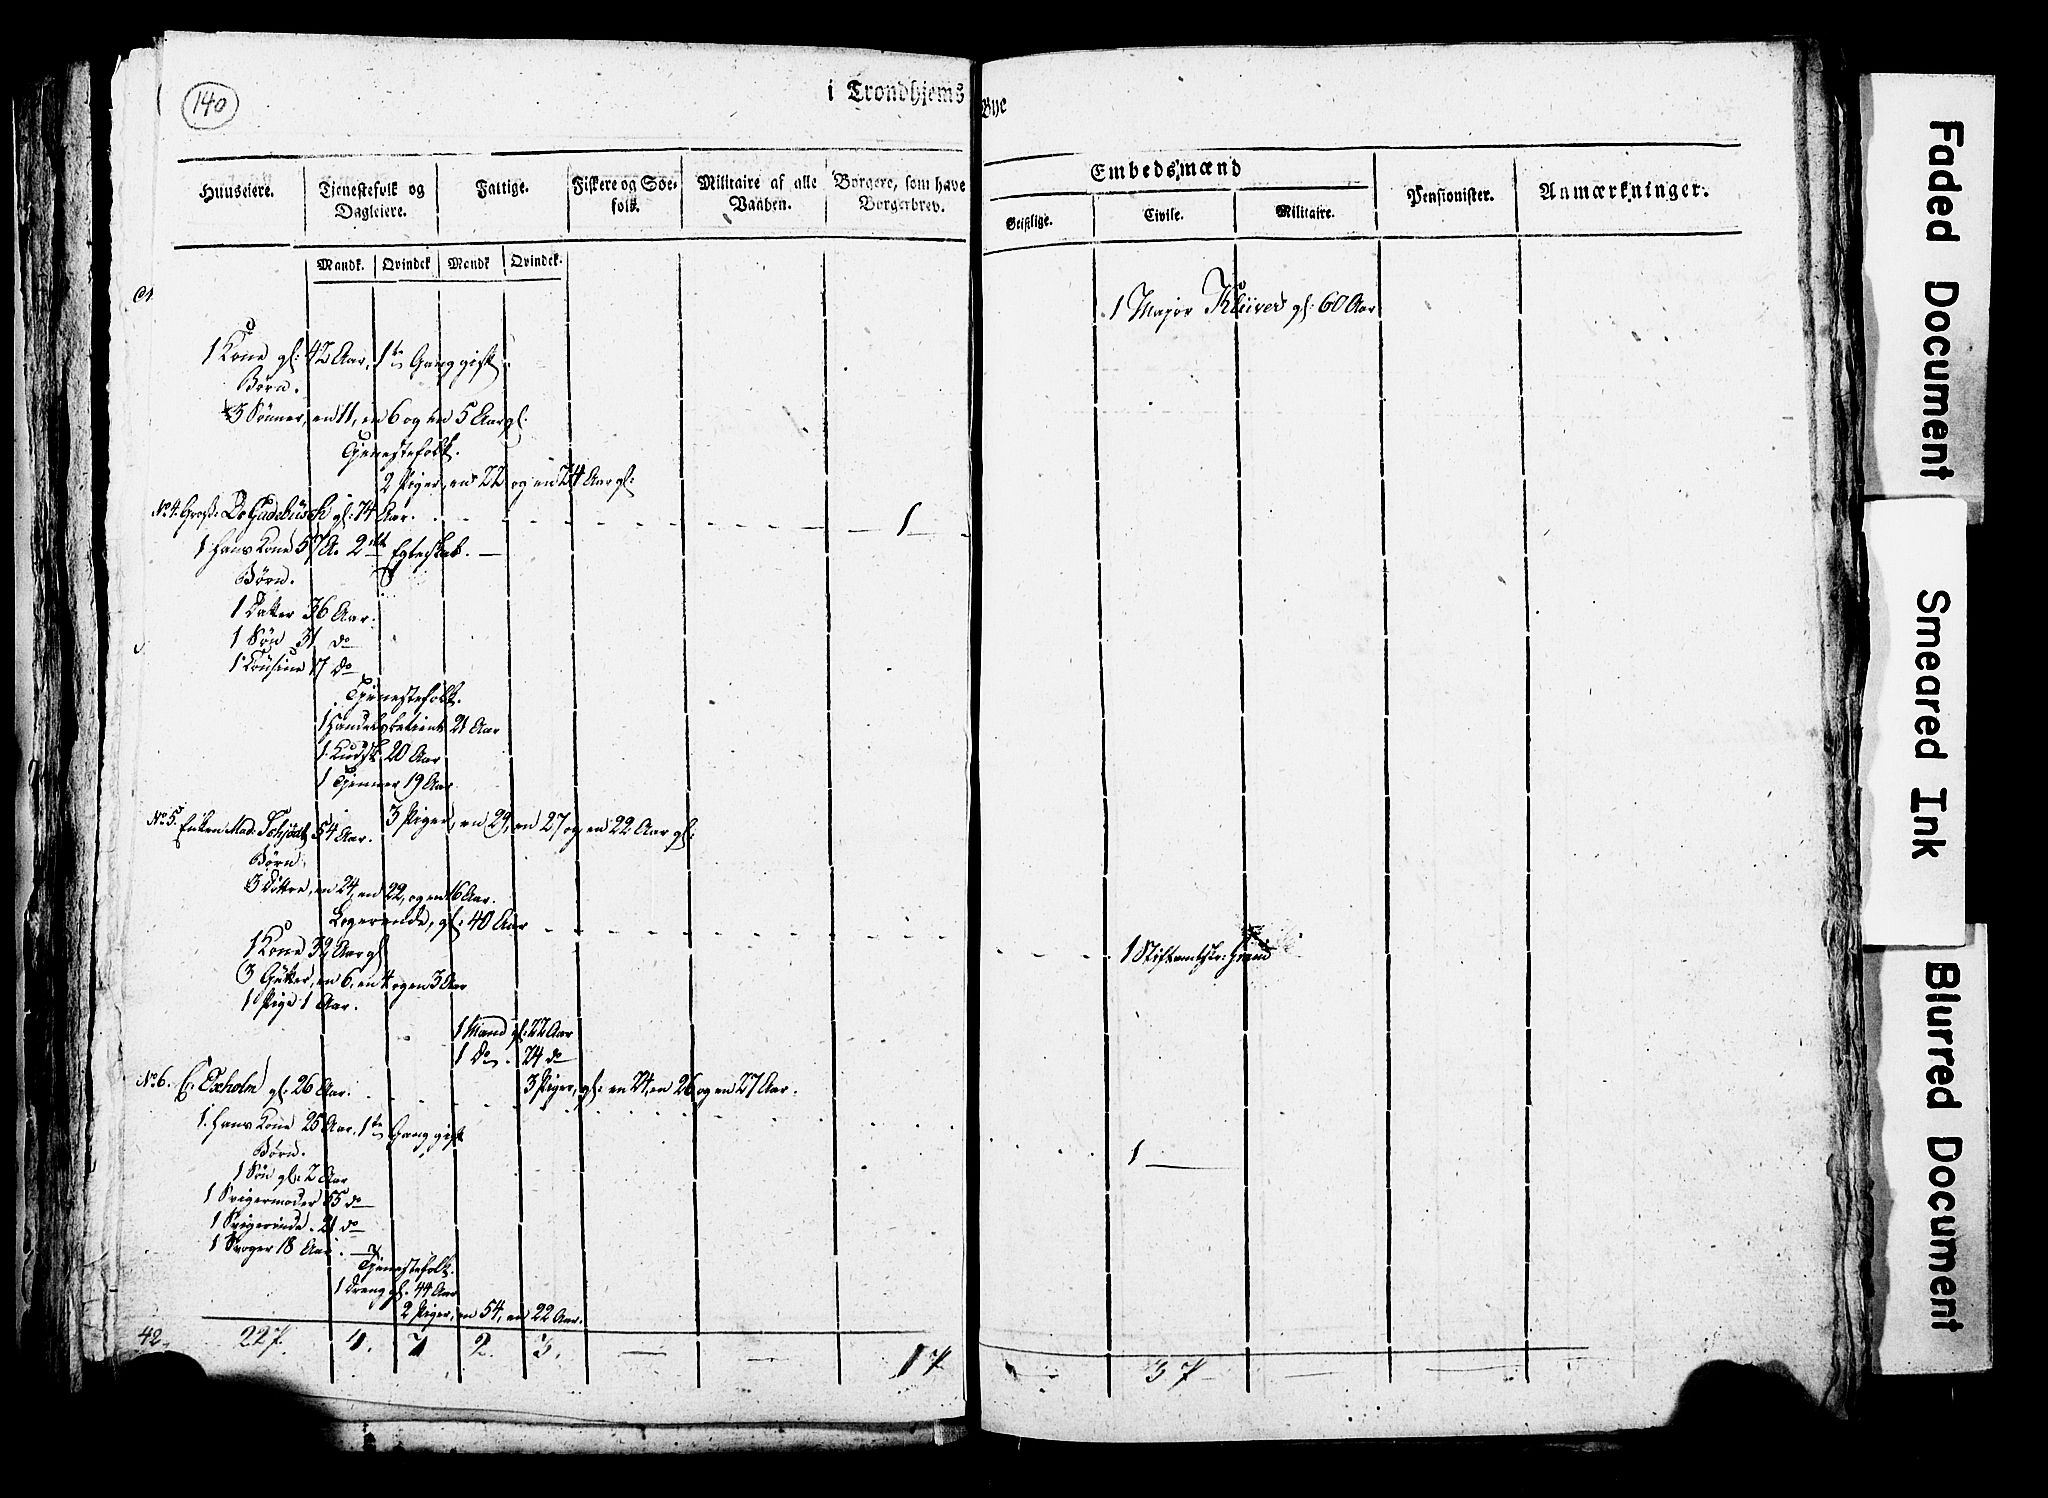 140
i Trondhjems Bye
Huuseiere.
Tjenestefolk og Dagleiere.
Fattige.
Fiskere og Søefolk.
Militaire af alle Vaaben.
Borgere, som have Borgerbrev.
Embedsmænd
Geistlige.
Civile.
Militaire.
Pensionister.
Anmærkninger.
Mandk. Qvindek Mandk Qvindek.
1 Major Klüver gl: 60 Aar
1 Kone gl: 42 Aar, 1te Gang gift
Børn.
3 Sønner, en 11, en 6 og en 5 Aar gl:
Tjenestefolk.
2 Piger, en 22 og en 24 Aar gl:
No 4. Gross: gl: 74 Aar. 1
1 Hans Kone 57 A. 2det Egteskab.
Børn.
1 Datter 36 Aar.
1 Søn 31 do
1 Cousine 17 do
Tjenestefolk.
1 Handelsbetient 21 Aar
1 Kudsk 20 Aar
1 Tjenner 19 Aar
3 Piger, en 29, en 27 og en 22 Aar gl:
No 5. Enken Mad: 54 Aar.
Børn.
3 Døttre, en 24, en 22, og en 16 Aar.
Logerende, gl: 40 Aar
1 Stiftamtskr:
1 Kone 32 Aar gl
3 Gutter, en 6, en 4 og en 3 Aar
1 Pige 1 Aar.
1 Mand gl: 22 Aar
1 Do. 24 do
3 Piger, gl: en 24, en 26 og en 27 Aar.
No 6. Exholm gl: 26 Aar. 1
1 Hans Kone 25 Aar, 1te Gang gift
Børn.
1 Søn gl: 2 Aar
1 Svigermoder 55 do
1 Svigerinde 21 do
1 Svoger 18 Aar.
Tjenestefolk.
1 Dreng gl: 44 Aar
2 Piger, en 54, en 22 Aar.
42 227. 4. 7 2. 3. 17 37
Faded Document
Smeared Ink
Blurred Document